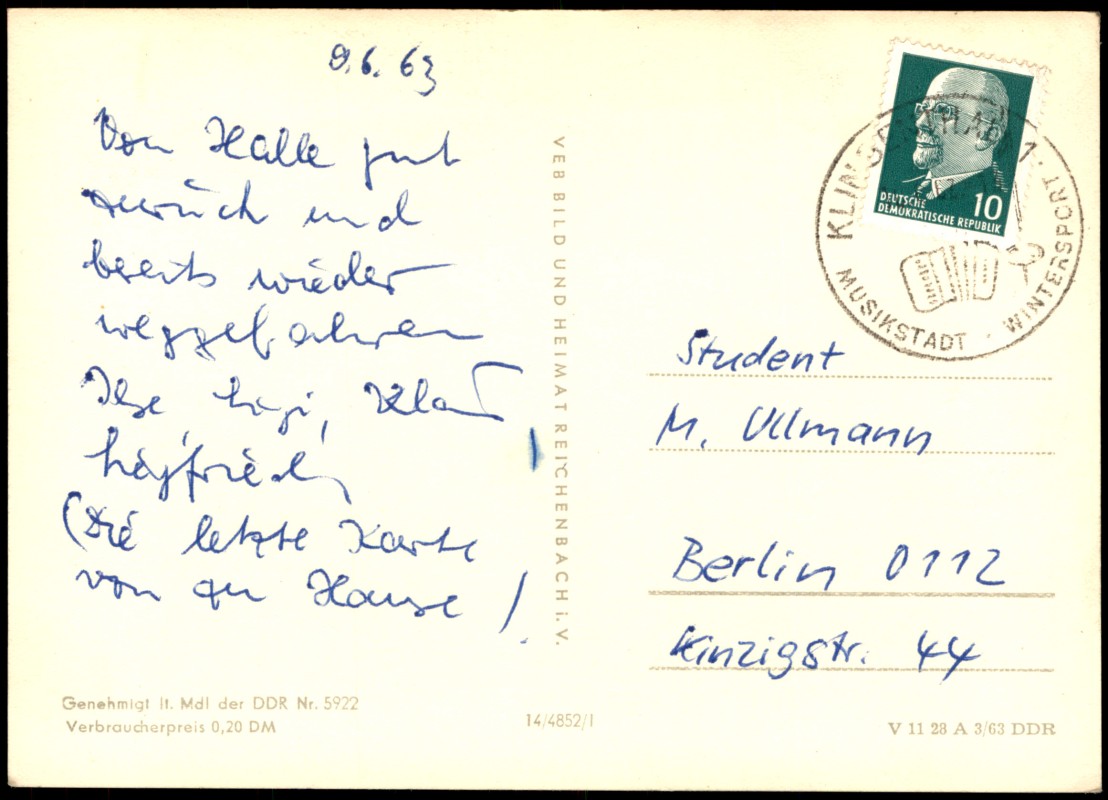 9.6.63
Von Halle gut
zurück und
bereits wieder
weggefahren
Ilse, Klaus,
(Die letzte Karte
von zu Hause!
VEB BILD UND HEIMAT REICHENBACH i. V.
Genehmigt lt. MdI der DDR Nr. 5922
Verbraucherpreis 0,20 DM
14/4852/1
DEUTSCHE
DEMOKRATISCHE REPUBLIK
10
KLINGENTHAL 1
MUSIKSTADT · WINTERSPORT
Student
M. Ullmann
Berlin 0112
Kinzigstr. 44
V 11 28 A 3/63 DDR